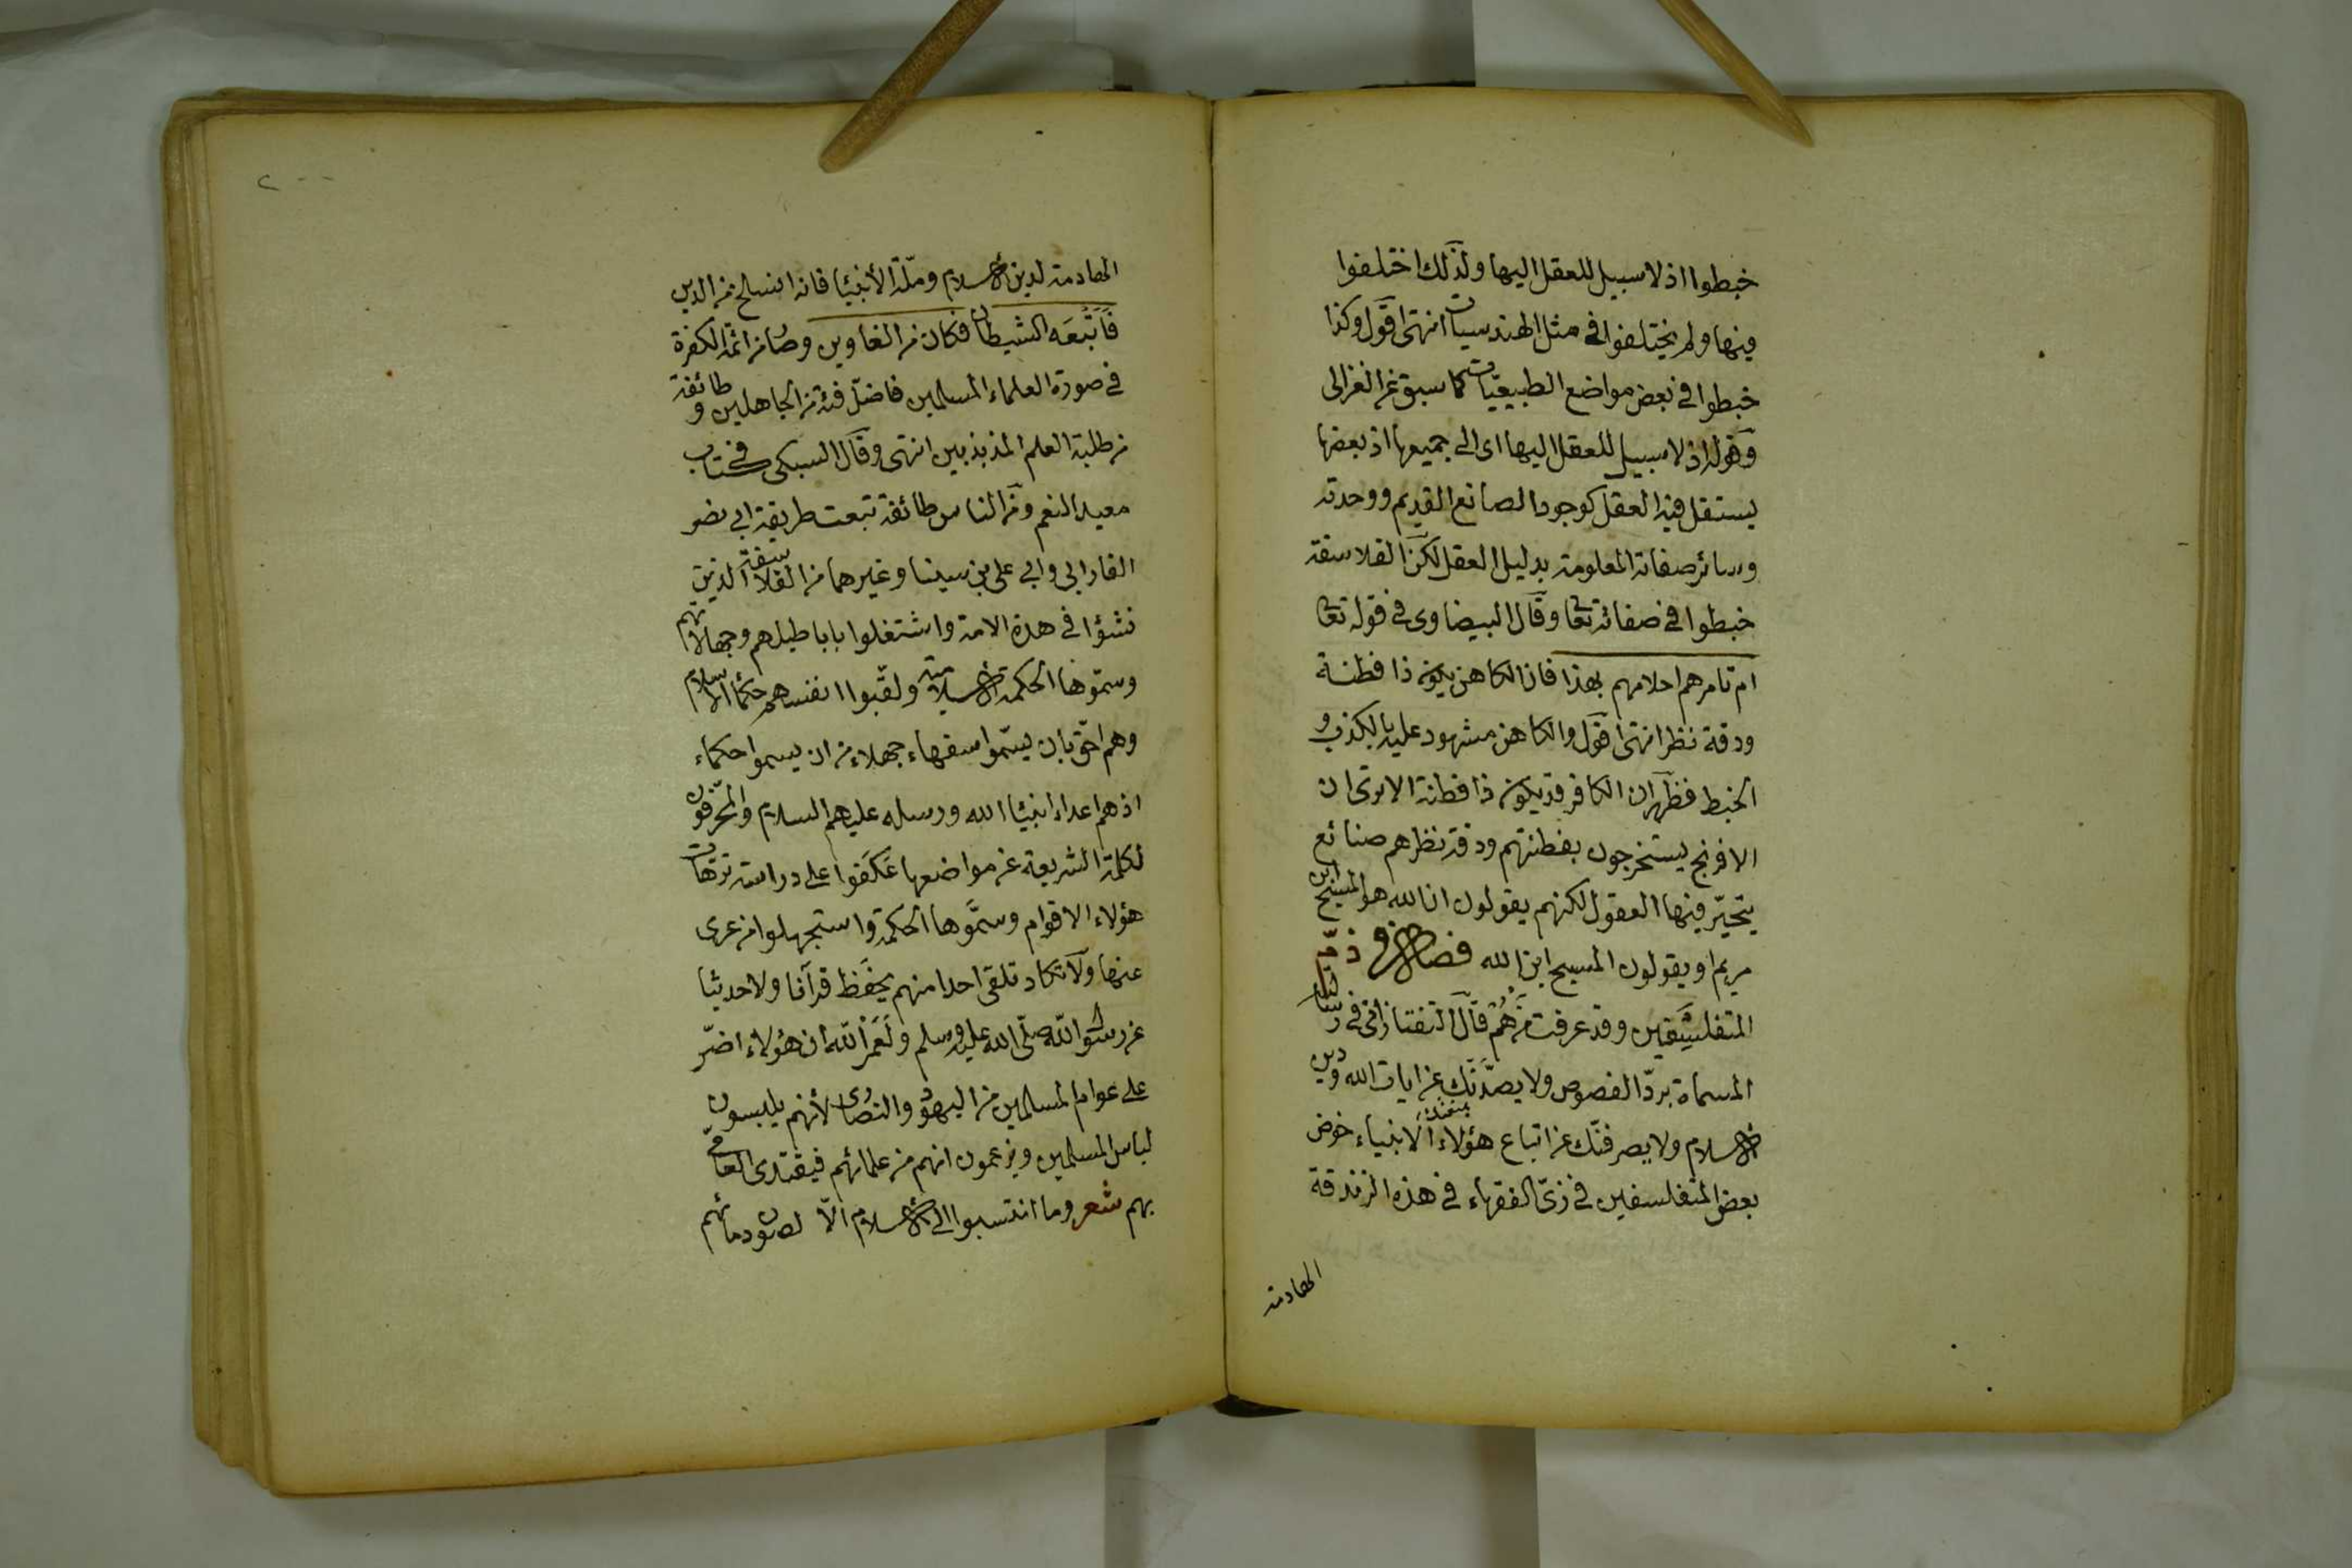 خبطوا اذ لا سبيل للعقل اليها ولذلك اختلفوا
فيها ولم يختلفوا في مثل الهندسيات انتهى اقول وكذا
خبطوا في بعض مواضع الطبيعيات كما سبق عن الغزالى
وقوله اذ لا سبيل للعقل اليها اى الى جميعها اذ بعضها
يستقل فيه العقل كوجود الصانع القديم ووحدته
وسائر صفاته المعلومة بدليل العقل لكن الفلاسفة
خبطوا في صفاته تعا وقال البيضاوى في قوله تعا
ام تامرهم احلامهم بهذا فان الكاهن يكون ذا فطنة
ودقة نظر انتهى اقول والكاهن مشهود عليه بالكذب و
الخبط فظهر ان الكافر قد يكون ذا فطنة الا ترى ان
الافرنج يستخرجون بفطنتهم ودقة نظرهم صنائع
يتحيّر فيها العقول لكنهم يقولون ان الله هو المسيح ابن
مريم او يقولون المسيح ابن الله فصل في ذمّ
المتفلسفين وقد عرفت مَن هُم قال التفتازانى في رسالته
المسماة بردّ الفصوص ولا يصدّنّك عن ايات الله ودين
الاسلام ولا يصرفنّك عن اتباع هؤلاء الانبياء خوض
بعض المتفلسفين في زىّ الفقهاء في هذه الزندقة
المصادمة
٢٠٠
المصادمة لدين الاسلام وملّة الأنبيا فانه انسلخ من الدين
فَاَتْبَعَه الشيطان فكان من الغاوين وصار من ائمة الكفرة
في صورة العلماء المسلمين فاضلّ فئة من الجاهلين وطائفة
من طلبة العلم المذبذبين انتهى وقال السبكى في كتاب
معيد النعم ومن الناس طائفة تبعت طريقة ابي نصر
الفارابي وابي على بن سينا وغيرهما من الفلاسفة الذين
نشؤا في هذه الامة واشتغلوا باباطيلهم وجهالاتهم
وسمّوها الحكمة الاسلامية ولقّبوا انفسهم حكما الاسلام
وهم احقّ بان يسمّوا سفهاء جهلاء من ان يسموا حكماء
اذ هم اعداء انبيا الله ورسله عليهم السلام والمحرّفون
لكلمة الشريعة عن مواضعها عَكَفوا على دراسة ترّهات
هؤلاء الاقوام وسمَّوها الحكمة واستجهلوا من عرى
عنها ولا تكاد تلقى احدا منهم يحفظ قرآنا ولا حديثا
عن رسول الله صلّى الله عليه وسلم ولَعَمْرُ الله ان هؤلاء اضرّ
على عوام المسلمين من اليهود والنصارى لأنهم يلبسون
لباس المسلمين ويزعمون انهم من علمائهم فيقتدى العامّى
بهم شعر وما انتسبوا الى الاسلام الّا لصون دمائهم